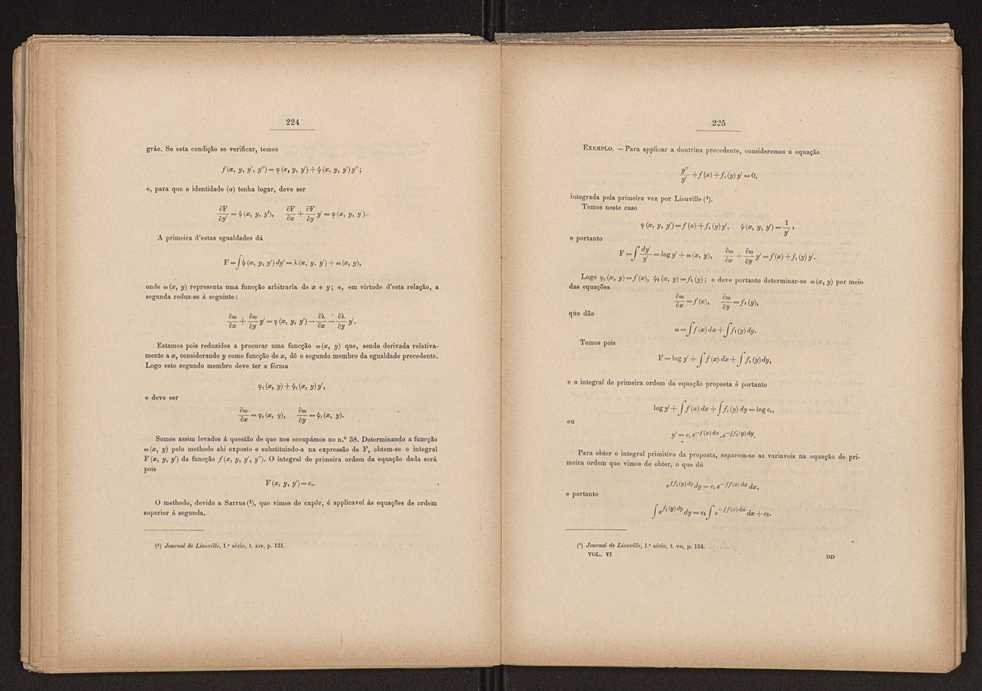 224
gráo. Se esta condição se verificar, temos
f(x, y, y', y'') = φ(x, y, y') + ψ(x, y, y') y'';
e, para que a identidade (a) tenha logar, deve ser
∂F/∂y' = ψ(x, y, y'), ∂F/∂x + ∂F/∂y y' = φ(x, y, y').
A primeira d'estas egualdades dá
F = ∫ψ(x, y, y') dy' = λ(x, y, y') + ω(x, y),
onde ω(x, y) representa uma funcção arbitraria de x e y; e, em virtude d'esta relação, a
segunda reduz-se á seguinte:
∂ω/∂x + ∂ω/∂y y' = φ(x, y, y') − ∂λ/∂x − ∂λ/∂y y'.
Estamos pois reduzidos a procurar uma funcção ω(x, y) que, sendo derivada relativa-
mente a x, considerando y como funcção de x, dê o segundo membro da egualdade precedente.
Logo este segundo membro deve ter a fórma
φ₁(x, y) + ψ₁(x, y) y',
e deve ser
∂ω/∂x = φ₁(x, y), ∂ω/∂y = ψ₁(x, y).
Somos assim levados á questão de que nos occupámos no n.º 38. Determinando a funcção
ω(x, y) pelo methodo ahi exposto e substituindo-a na expressão de F, obtem-se o integral
F(x, y, y') da funcção f(x, y, y', y''). O integral de primeira ordem da equação dada será
pois
F(x, y, y') = c.
O methodo, devido a Sarrus (¹), que vimos de expôr, é applicavel ás equações de ordem
superior á segunda.
(¹) Journal de Liouville, 1.ª série, t. XIV, p. 131.
225
EXEMPLO. — Para applicar a doutrina precedente, consideremos a equação
y''/y' + f(x) + f₁(y) y' = 0,
integrada pela primeira vez por Liouville (¹).
Temos neste caso
φ(x, y, y') = f(x) + f₁(y) y', ψ(x, y, y') = 1/y',
e portanto
F = ∫ dy'/y' = log y' + ω(x, y), ∂ω/∂x + ∂ω/∂y y' = f(x) + f₁(y) y'.
Logo φ₁(x, y) = f(x), ψ₁(x, y) = f₁(y); e deve portanto determinar-se ω(x, y) por meio
das equações
∂ω/∂x = f(x), ∂ω/∂y = f₁(y),
que dão
ω = ∫f(x) dx + ∫f₁(y) dy.
Temos pois
F = log y' + ∫f(x) dx + ∫f₁(y) dy,
e o integral de primeira ordem da equação proposta é portanto
log y' + ∫f(x) dx + ∫f₁(y) dy = log c₁,
ou
y' = c₁ e^{−∫f(x) dx} . e^{−∫f₁(y) dy}.
Para obter o integral primitivo da proposta, separem-se as variaveis na equação de pri-
meira ordem que vimos de obter, o que dá
e^{∫f₁(y) dy} dy = c₁ e^{−∫f(x) dx} dx,
e portanto
∫e^{∫f₁(y) dy} dy = c₁ ∫e^{−∫f(x) dx} dx + c₂.
(¹) Journal de Liouville, 1.ª série, t. VII, p. 134.
VOL. VI DD